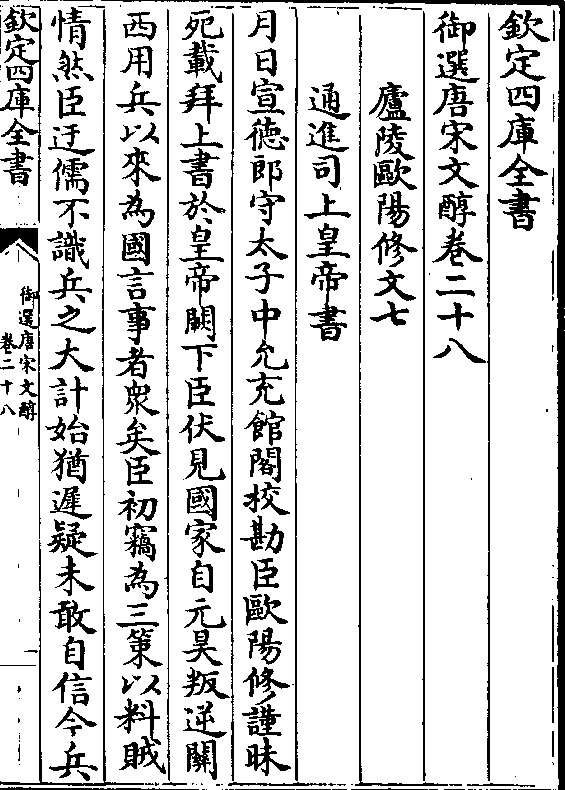 欽定四庫全書
御選唐宋文醇卷二十八
廬陵歐陽修文七
通進司上皇帝書
月日宣徳郎守太子中允充館閣校勘臣歐陽修謹昧
死載拜上書於皇帝闕下臣伏見國家自元昊叛逆關
西用兵以來為國言事者衆矣臣初竊為三策以料賊
情然臣迂儒不識兵之大計始猶遲疑未敢自信今兵
欽定四庫全書
御選唐宋文醇
卷二十八
一